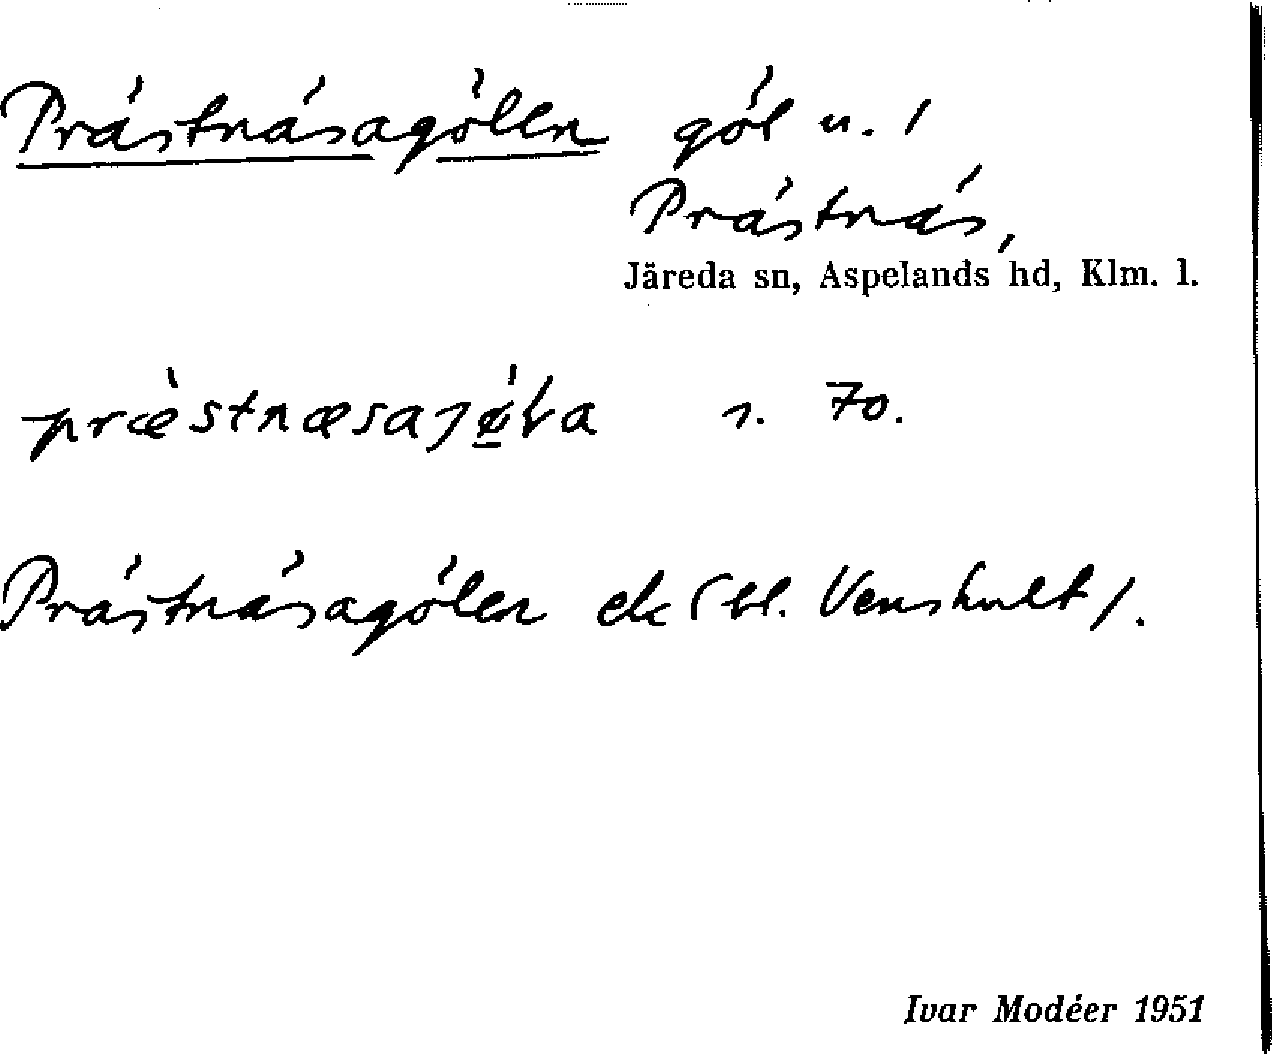 Prästnäsagölen göl u. /
Prästnäs,
Järeda sn, Aspelands hd, Klm. l.
s. 70.
Prästnäsagölen ek (bl. Venshult).
Ivar Modéer 1951